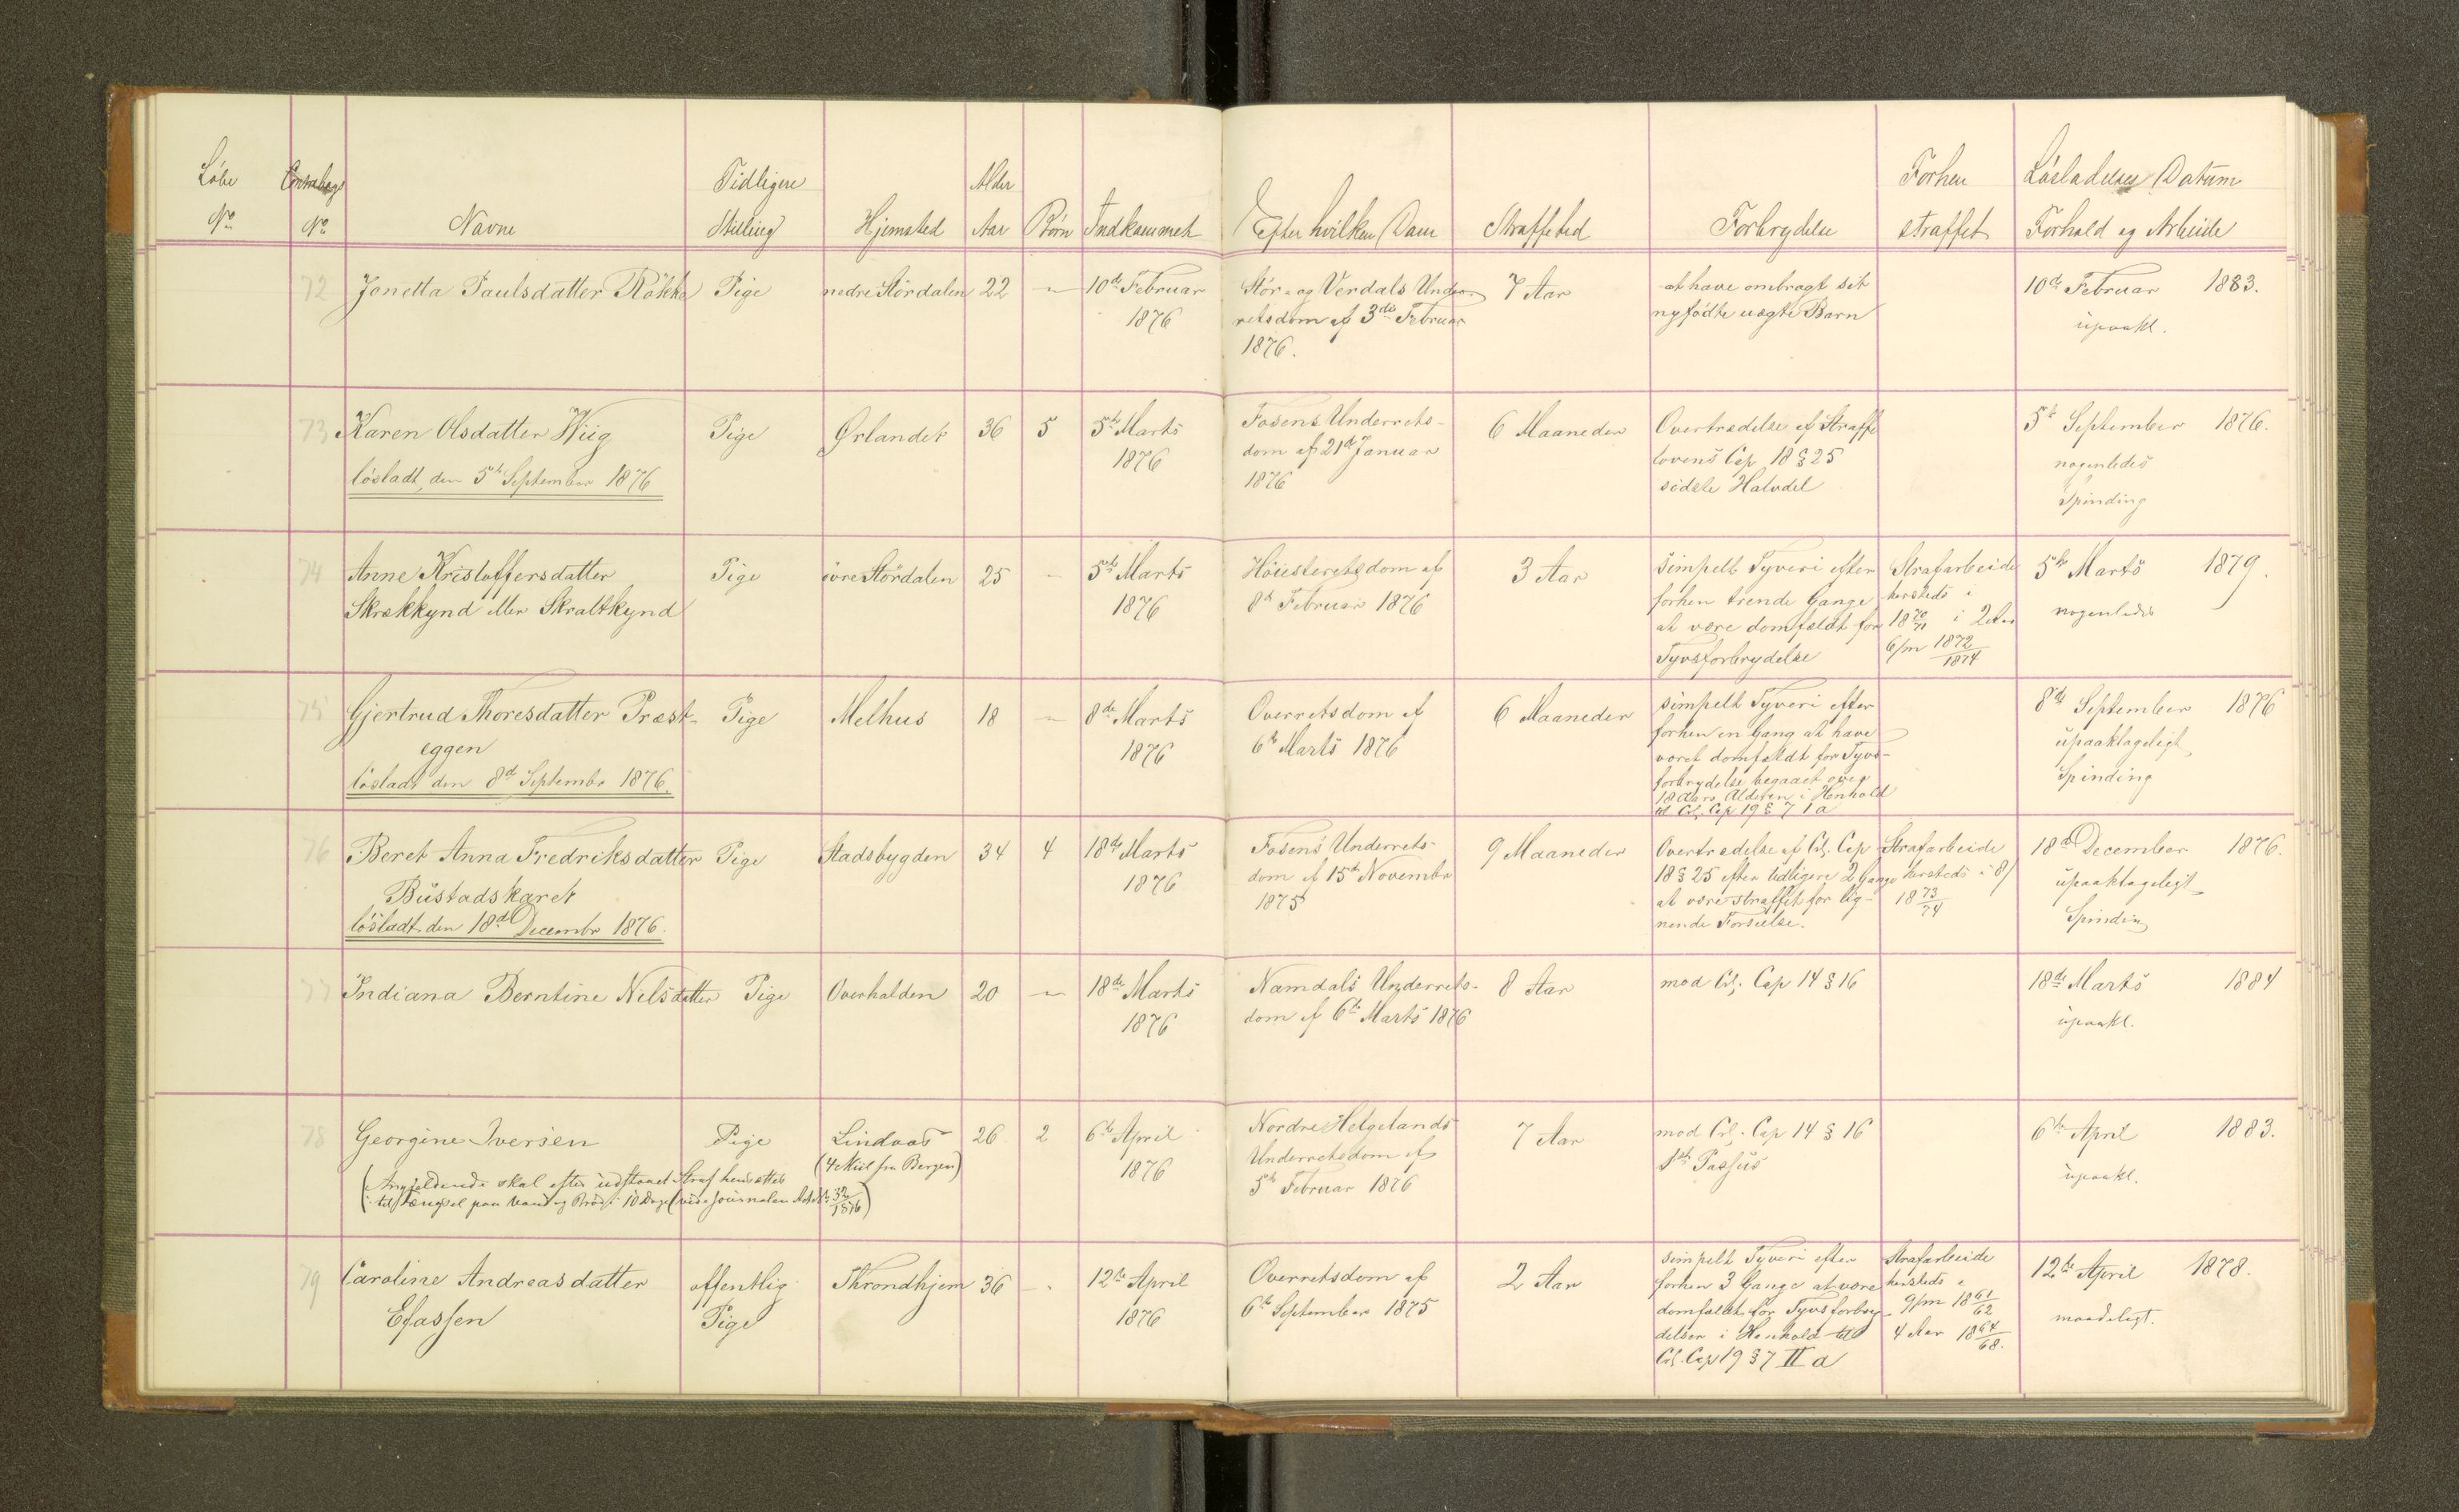 Löbe Tidligere Alder Forhen Lösladelses Datum
No No Navne Stilling Hjemsted Aar Börn Indkommet Efter hvilken Dom Straffetid Forbrydelse straffet Forhold og Arbeide
72 Jonetta Paulsdatter Rökke Pige nedre Stördalen 22 – 10de Februar Stör- og Verdals Under- 7 Aar at have ombragt sit 10de Februar 1883.
1876 retsdom af 3die Februar nyfødte uægte Barn upaakl.
1876.
73 Karen Olsdatter Wiig Pige Ørlandet 36 5 5te Marts Fosens Underrets- 6 Maaneder Overtrædelse af Straffe 5te September 1876.
1876 dom af 21de Januar lovens Cap 18 § 25 nogenledes
lösladt den 5te September 1876 1876 sidste Halvdel Spinding
74 Anne Kristoffersdatter Pige övre Stördalen 25 – 5te Marts Höiesteretsdom af 3 Aar simpelt Tyveri efter Strafarbeide 5te Marts 1879.
Skrækkynd eller Skraltkynd 1876 8de Februar 1876 forhen trende Gange hersteds i nogenledes
at være domfældt for 18 70/71 i 2den
Tyvsforbrydelse 6/m 1872/1874
75 Gjertrud Thoresdatter Præst- Pige Melhus 18 – 8de Marts Overretsdom af 6 Maaneder simpelt Tyveri efter 8de September 1876
eggen 1876 6te Marts 1876 forhen en Gang at have upaaklageligt
lösladt den 8de Septembr 1876. været domfældt for Tyvs- Spinding
forbrydelse begaaet over
18 Aars Alderen i Henhold
til Crl. Cap 19 § 7 1 a
76 Beret Anna Fredriksdatter Pige Stadsbygden 34 4 18de Marts Fosens Underrets- 9 Maaneder Overtrædelse af Crl. Cap Strafarbeide 18de December 1876.
Bustadskaret 1876 dom af 15de Novembr 18 § 25 efter tidligere 2 Gange hersteds i 8/ upaaklageligt
lösladt den 18de Decembr 1876. 1875 at være straffet for lig- 18 73/74 Spinding
nende Forseelse.
77 Indiana Berntine Nilsdatter Pige Overhalden 20 – 18de Marts Namdals Underrets- 8 Aar mod Crl. Cap 14 § 16 18de Marts 1884
1876 dom af 6te Marts 1876 upaakl.
78 Georgine Iversen Pige Lindaas 26 2 6te April Nordre Helgelands 7 Aar mod Crl. Cap 14 § 16 6te April 1883.
(4 Miil fra Bergen) 1876 Underretsdom af 1ste Passus upaakl.
(Angjeldende skal efter udstaaet Straf hensættes 5te Februar 1876
til Fængsel paa Vand og Bröd i 10 Dage (vide Journalen 32/1876)
79 Caroline Andreasdatter offentlig Throndhjem 36 – 12te April Overretsdom af 2 Aar simpelt Tyveri efter Strafarbeide 12te April 1878.
Efassen Pige 1876 6te September 1875 forhen 3 Gange at være hersteds i maadeligt.
domfældt for Tyvsforbry- 9/m 18 61/62
delser i Henhold til 4 Aar 18 64/68.
Crl. Cap 19 § 7 II a